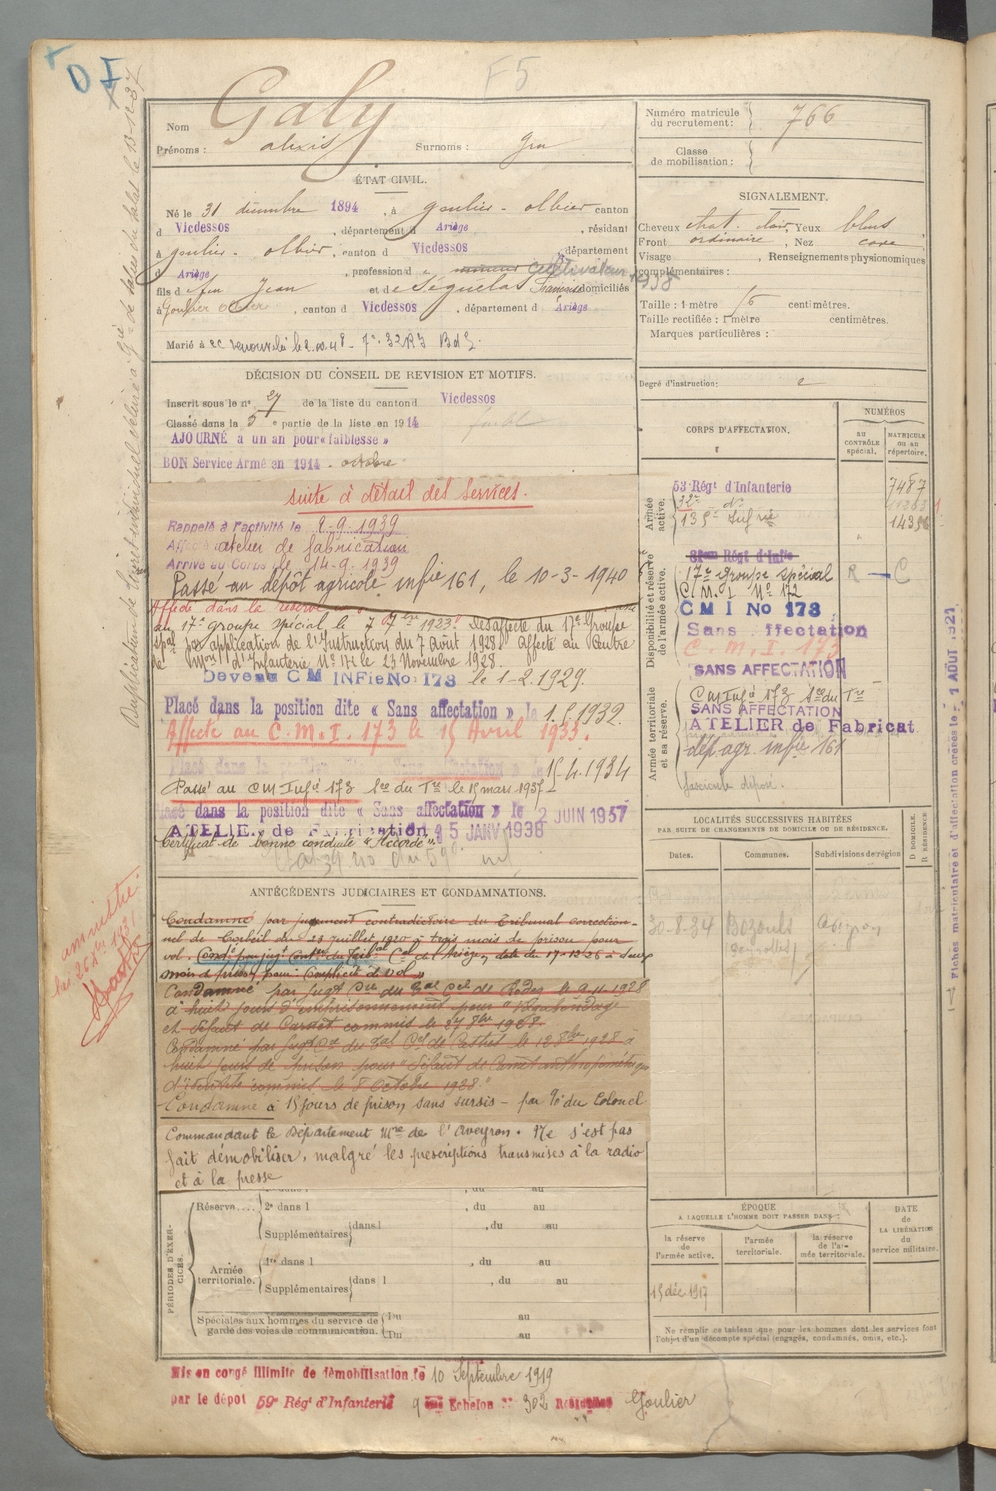 D I
F5
Nom Galy
Prénoms : alexis Surnoms :
ÉTAT CIVIL.
Né le 31 décembre 1894, à goulier-olbier canton
d Vicdessos, département d Ariège, résidant
à goulier-olbier, canton d Vicdessos, département
d Ariège, profession d cultivateur
fils d feu Jean et de Séguélas Françoise domiciliés
à goulier olbier, canton d Vicdessos, département d Ariège
Marié à
DÉCISION DU CONSEIL DE REVISION ET MOTIFS.
Inscrit sous le n° 27 de la liste du canton d Vicdessos
Classé dans la 5e partie de la liste en 1914
AJOURNÉ a un an pour « faiblesse »
BON Service Armé en 1914 - octobre
suite à détail des services.
Rappelé à l'activité le 2-9-1939
Affecté atelier de fabrication
Arrivé au Corps le 14-9-1939
Passé au dépôt agricole infie 161, le 10-3-1940
Affecté dans la réserve
au 17e groupe spécial le 7 1923. Désaffecté du 17e Groupe
spal par application de l'Instruction du 7 Août 1928. Affecté au Centre
d'Infanterie N° 172 le 23 Novembre 1928.
Devenu C M INFie No: 173 le 1-2-1929.
Placé dans la position dite « Sans affectation » le 1.5.1932.
Affecté au C.M.I. 173 le 15 Avril 1933.
Placé dans la position dite « Sans affectation » le 15-4-1934
Passé au CM Infie 173 le 15 mars 1937
Placé dans la position dite « Sans affectation » le 2 JUIN 1937
ATELIER de Fabrication 5 JANV 1938
Certificat de bonne conduite « Accordé ».
ANTÉCÉDENTS JUDICIAIRES ET CONDAMNATIONS.
Condamné par jugement contradictoire du Tribunal correction-
nel de Corbeil du 23 juillet 1920 à trois mois de prison pour
vol. Condé par jugt Contre du Tribal Cel de l'Ariège, date du 17-12-26 à deux
mois de prison pour : Complicité de vol »
Condamné par Jugt Cre du Bal Cel de Rodez le 9-11-1928
à huit jours d'emprisonnement pour « Vagabondage
et défaut de Carnet commis le 27 8bre 1928.
Condamné par Jugt Ct du Bal Cel de Castres le 12 8bre 1928 à
huit jours de prison pour « Défaut de Carnet anthropométrique
d'identité commis le 8 Octobre 1928. »
Condamné à 15 jours de prison sans sursis - par du Colonel
Commandant le Département Mre de l'Aveyron. Ne s'est pas
fait démobiliser, malgré les prescriptions transmises à la radio
et à la presse
PÉRIODES D'EXERCICES.
Réserve.... 2e dans l , du au
Supplémentaires dans l , du au
Armée territoriale. 1re dans l , du au
Supplémentaires dans l , du au
Spéciales aux hommes du service de garde des voies de communication. Du au
Du au
Mis en congé illimité de démobilisation le 10 Septembre 1919
par le dépôt 59e Régt d'Infanterie 9 Echelon N° 302 Goulier
Numéro matricule du recrutement : 766
Classe de mobilisation :
SIGNALEMENT.
Cheveux chat. clair, Yeux bleus
Front ordinaire, Nez cave
Visage , Renseignements physionomiques
complémentaires :
1938
Taille : 1 mètre centimètres.
Taille rectifiée : 1 mètre centimètres.
Marques particulières :
Degré d'instruction : 2
CORPS D'AFFECTATION.
NUMÉROS
au CONTRÔLE spécial.
MATRICULE ou au répertoire.
Armée active.
53 Régt d'Infanterie 7487
135e Infrie
Disponibilité et réserve de l'armée active.
17e groupe spécial R - C
C.M.I N° 172
C M I No 173
Sans affectation
C.M.I. 173
SANS AFFECTATION
Armée territoriale et sa réserve.
CM Infie 173
SANS AFFECTATION
ATELIER de Fabricat
dép. agr. infie 161
fascicule déposé.
LOCALITÉS SUCCESSIVES HABITÉES
PAR SUITE DE CHANGEMENTS DE DOMICILE OU DE RÉSIDENCE.
Dates. Communes. Subdivisions de région
D DOMICILE. R RÉSIDENCE
30-8-34 Bozouls Aveyron
ÉPOQUE
A LAQUELLE L'HOMME DOIT PASSER DANS
la réserve de l'armée active.
l'armée territoriale.
la réserve de l'armée territoriale.
DATE de LA LIBÉRATION du service militaire.
15 déc 1917
Ne remplir ce tableau que pour les hommes dont les services font
l'objet d'un décompte spécial (engagés, condamnés, omis, etc.).
amnistié
Fiches matriculaire et d'affectation créées le 1 AOUT 1927